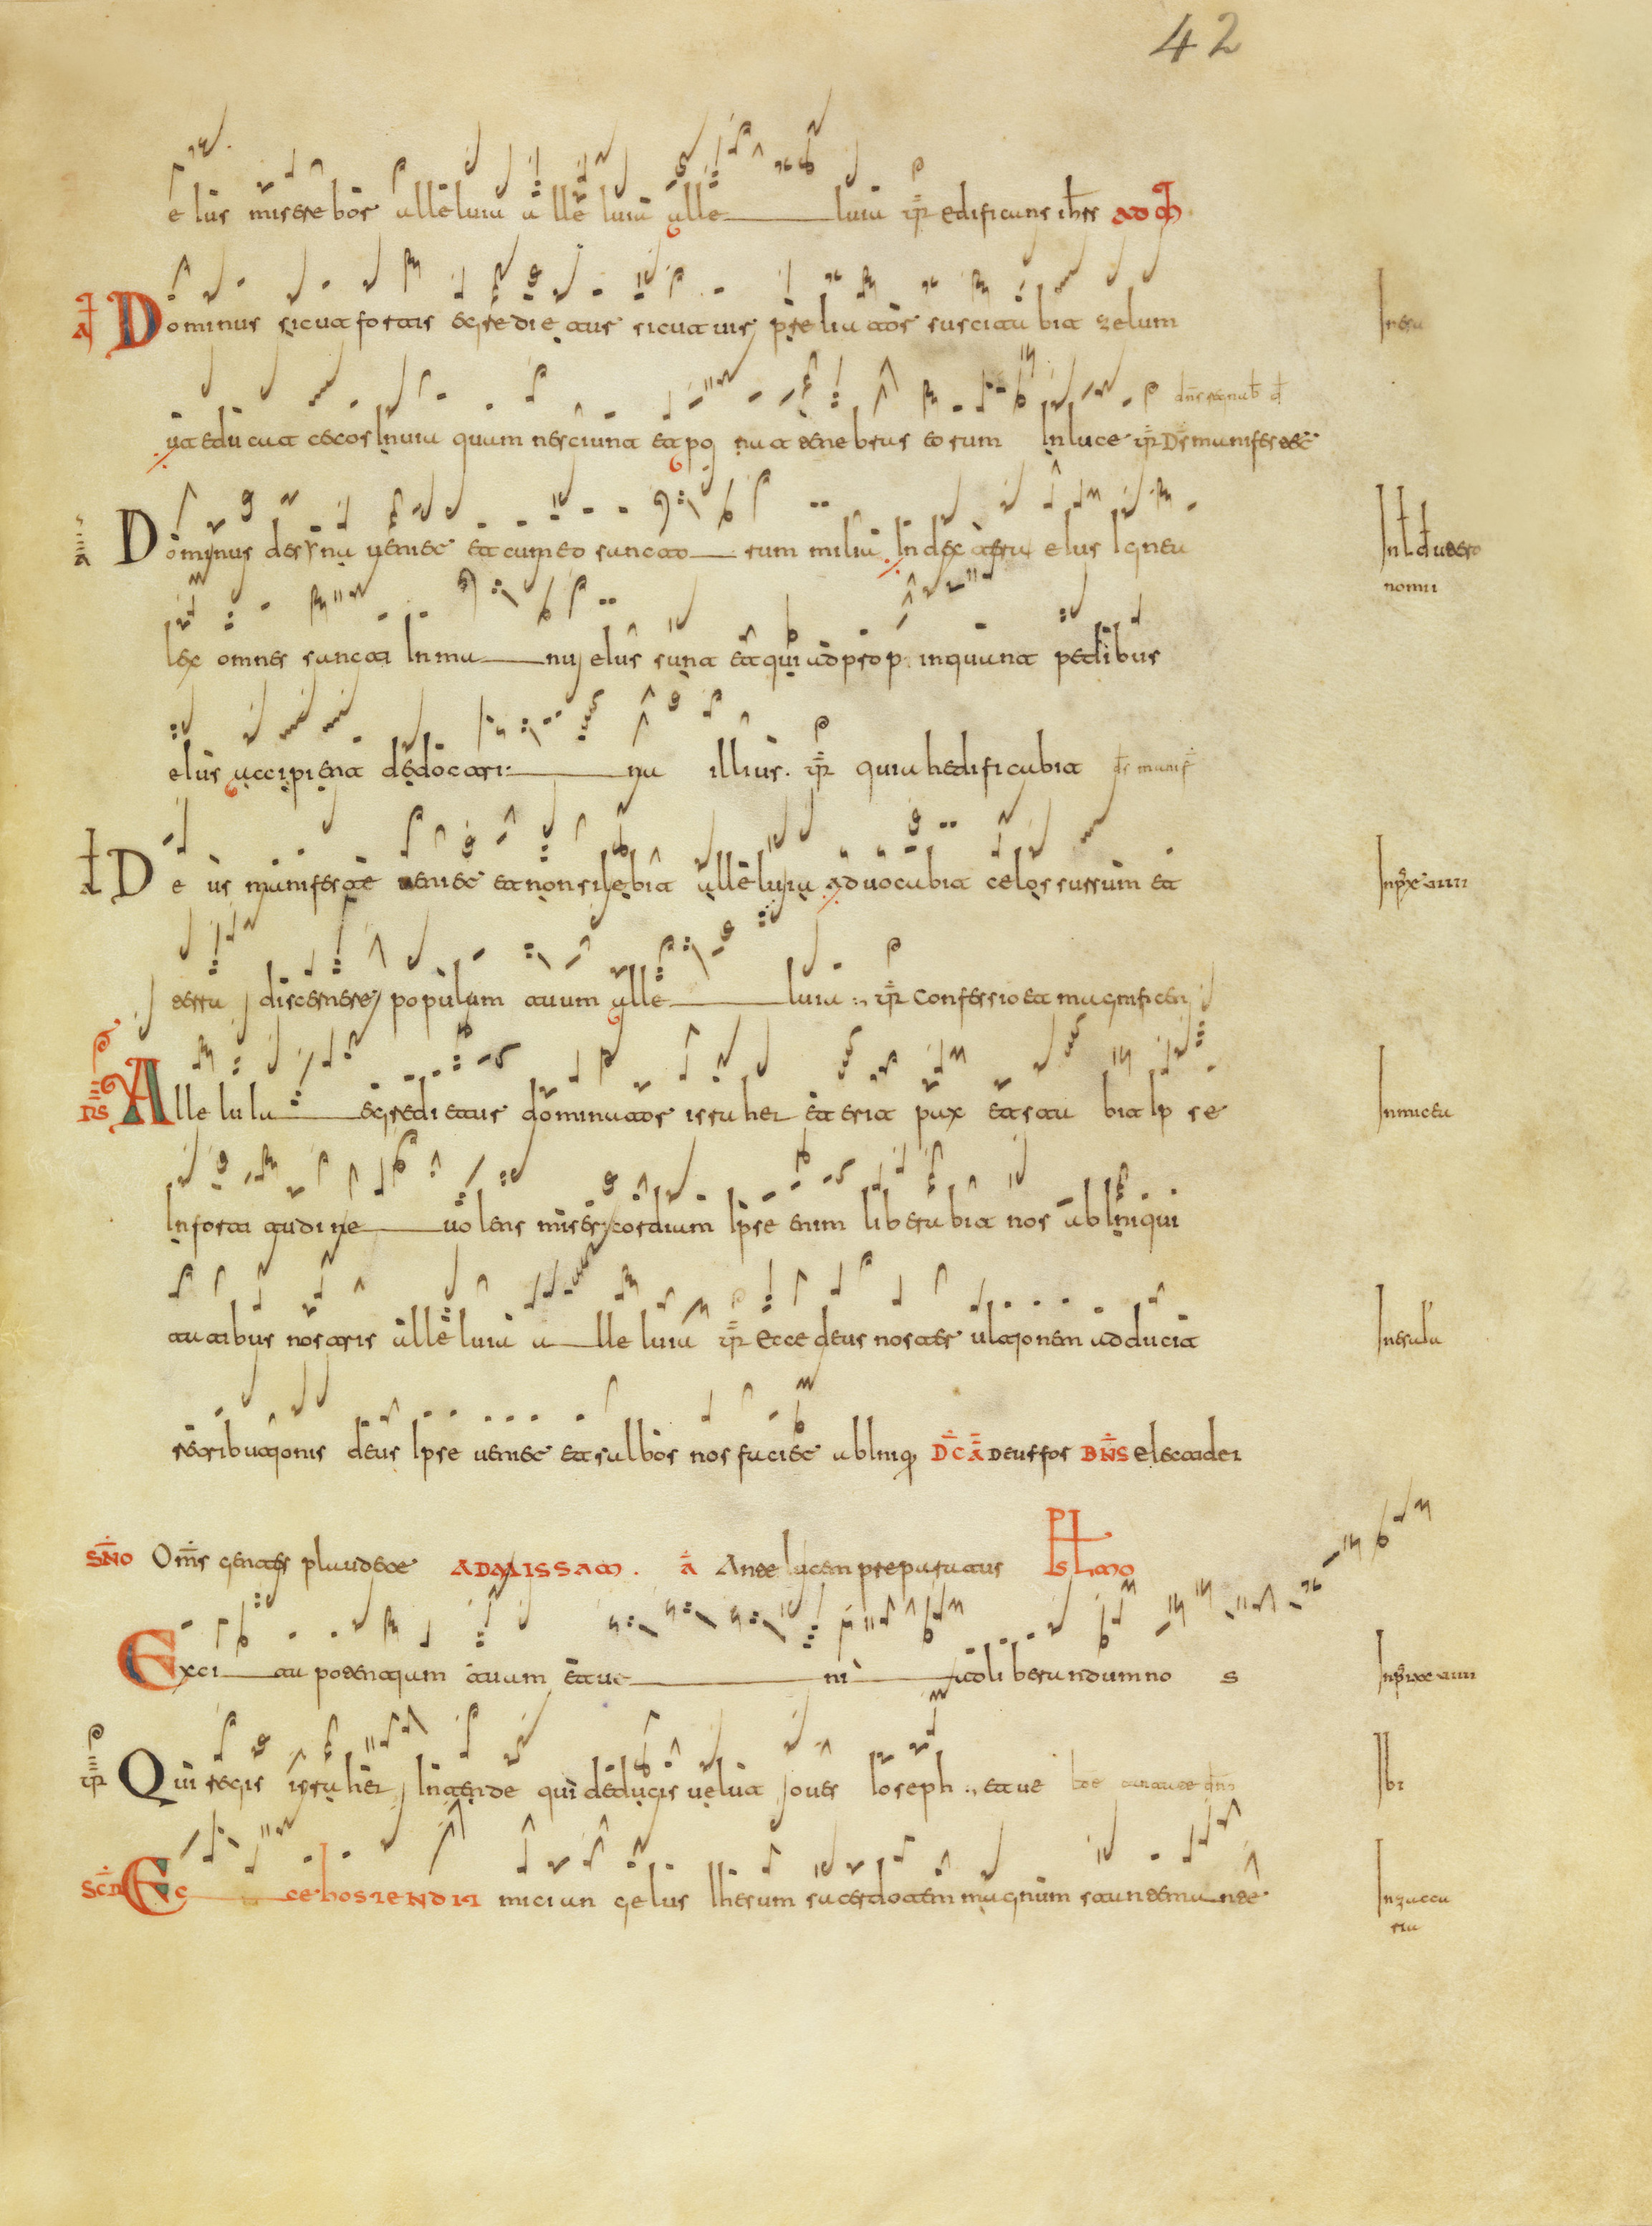 42
elus miserebor alleluia alleluia alle luia VR edificans ihrs AD M
Dominus sicut fortis egredietur sicut uir preliator suscitabit zelum
ut educat cecos In uia quam nesciunt et pono tenebras eorum In luce VR Ds manifeste
Dominus de Syna ueniet et cum eo sancto rum milia In dextera elus Ignea
lex omnes sancti In manu elus sunt et qui adprop inquant pedibus
elus accipient de doctri na illius. VR quia hedificabit ds manif
Deus manifeste ueniet et non silebit alleluia aduocabit celos sursum et
terra discernere populum tuum alle luia VR Confessio et magnificen
Allelula egredietur dominator issrahel et erit pax et stabit Ipse
In fortitudine uolens misericordiam Ipse enim liberabit nos ab Iniqui
tatibus nostris alleluia alleluia VR Ecce deus noster ultionem adducit
retributionis deus Ipse ueniet et salbos nos faciet ab Iniq DCA Deus fos BNS electi dei
SNO Oms gentes plaudite AD MISSAM. A Ante lucem preparatus PSLMO
Excita potentiam tuam et ue ni ad liberandum nos
VR Qui regis israhel Intende qui deducis uelut oues Ioseph et ue
SCN Ecce hostendit mici angelus Ihesum sacerdotem magnum stantem ante
In esa
In ld uetero
nomii
In ps xlviiii
In micea
In esaia
In ps lxxviiii
Ibi
In zacca
ria